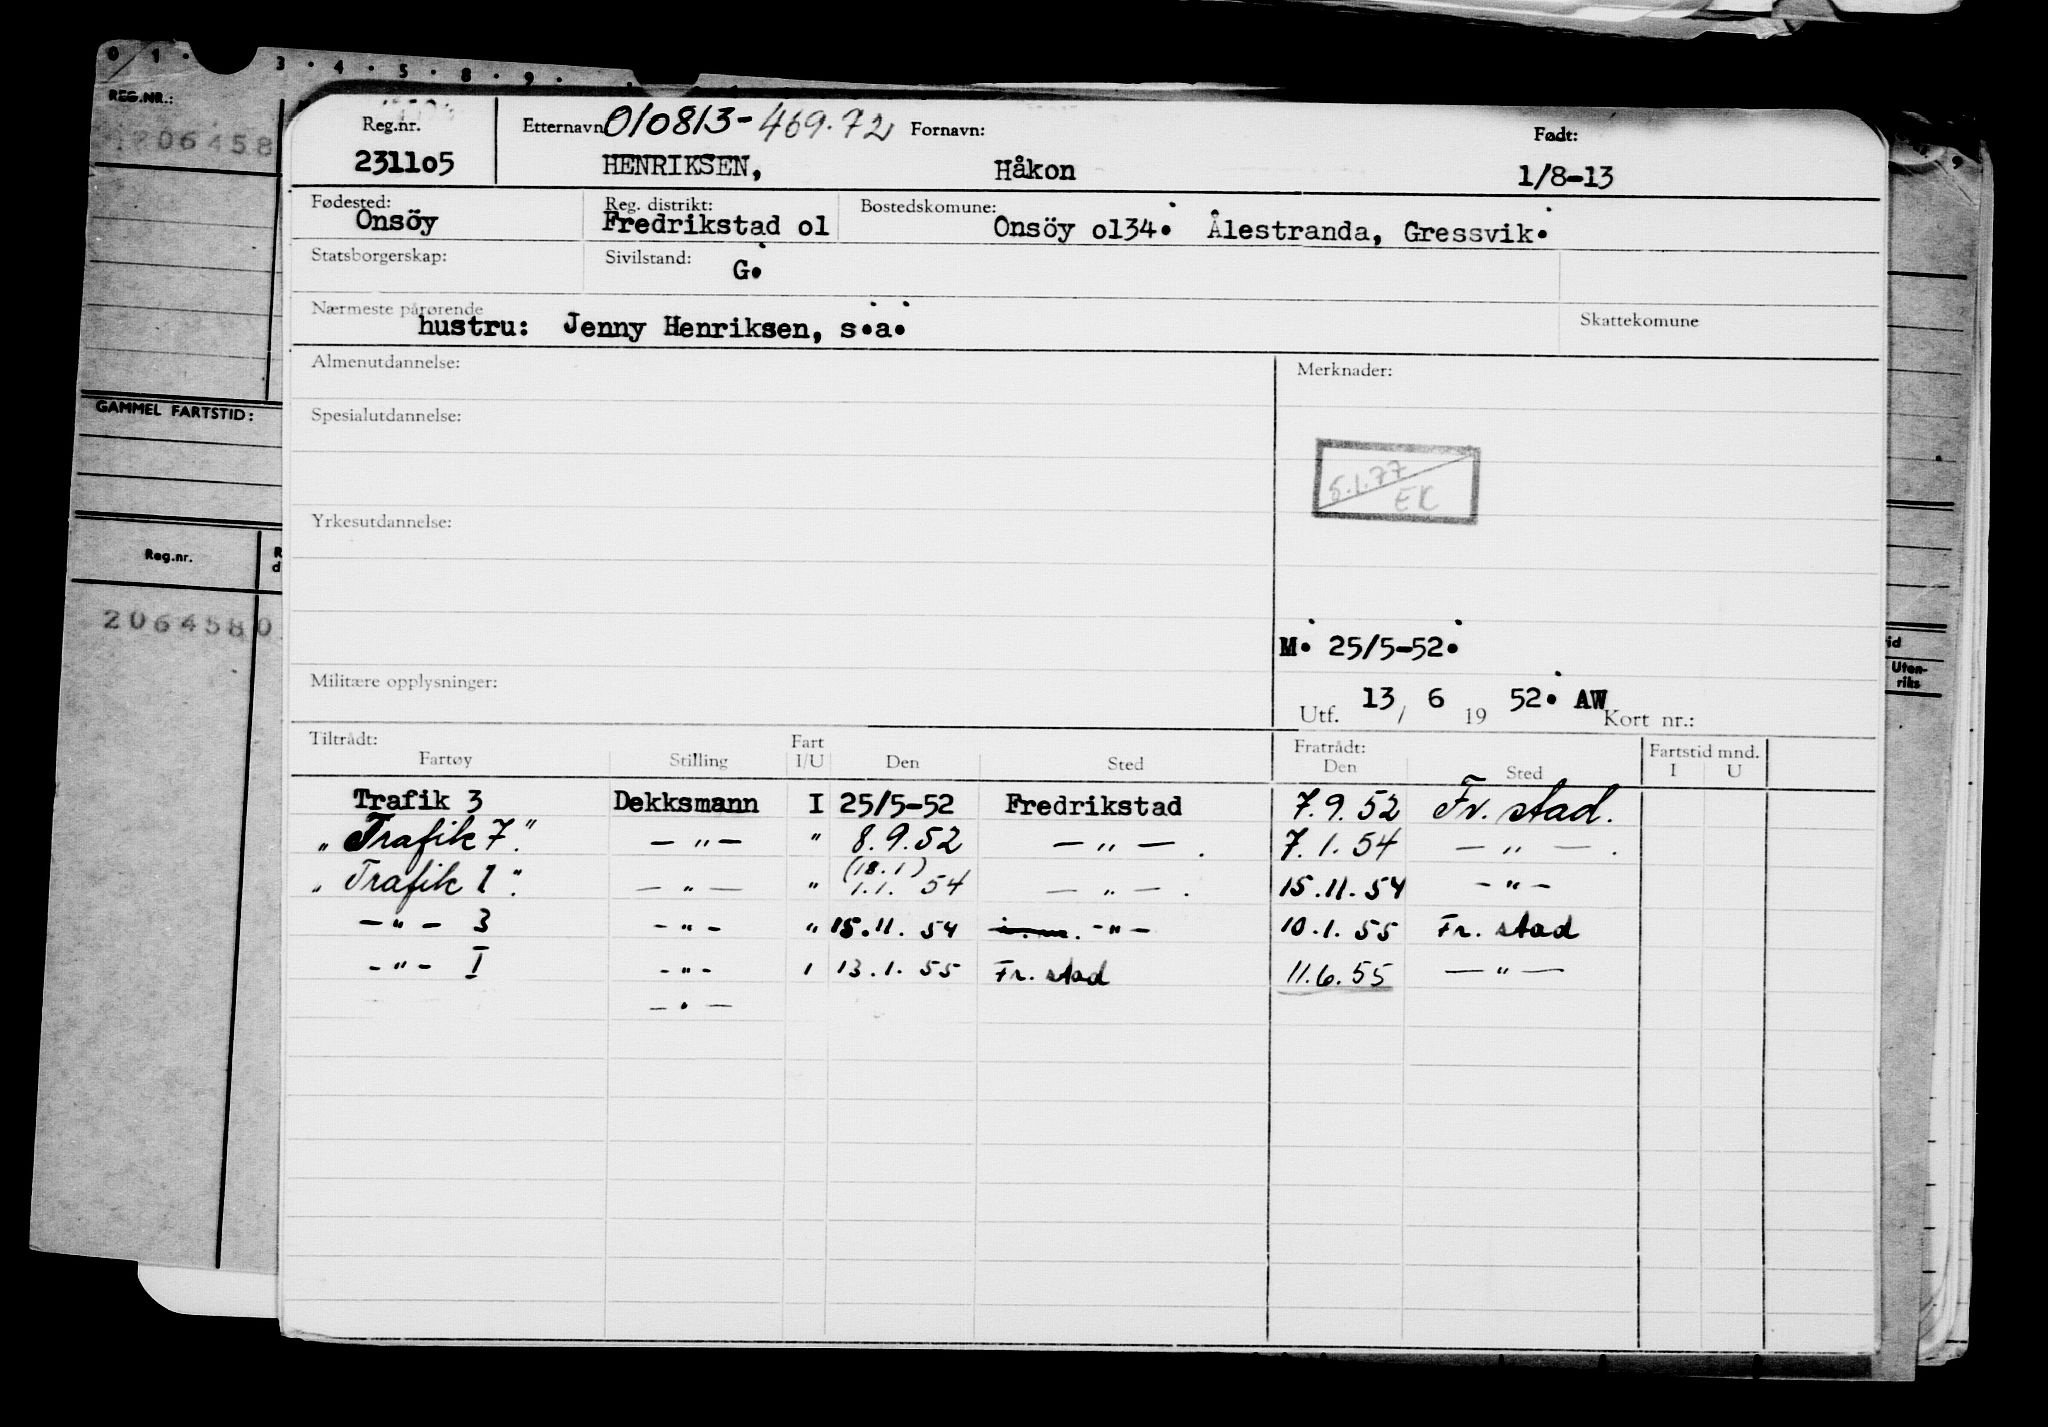 0 1 . 3 . 4 . 5 . 8 . 9 .
REG.NR.:
206458
GAMMEL FARTSTID:
Reg.nr.
2064580
Uten-
riks
Reg.nr. Etternavn 010813-469.72 Fornavn: Født:
231105 HENRIKSEN, Håkon 1/8-13
Fødested: Reg. distrikt: Bostedskomune:
Onsöy Fredrikstad o1 Onsöy o134. Ålestranda, Gressvik.
Statsborgerskap: Sivilstand: G.
Nærmeste pårørende Skattekomune
hustru: Jenny Henriksen, s.a.
Almenutdannelse: Merknader:
Spesialutdannelse:
5.1.77
EK
Yrkesutdannelse:
M. 25/5-52.
Militære opplysninger:
Utf. 13 / 6 19 52. AW Kort nr.:
Tiltrådt: Fart Fratrådt: Fartstid mnd.
Fartøy Stilling I/U Den Sted Den Sted I U
Trafik 3 Dekksmann I 25/5-52 Fredrikstad 7.9.52 Fr. stad.
„Trafik 7." — " — " 8.9.52 — " — . 7.1.54 — " — .
(18.1)
„Trafik 1". — " — " 1.1. 54 — " — . 15.11.54 - " -
- " - 3 - " - " 15.11.54 - " - 10.1.55 Fr. stad
- " - I - " - ' 13.1.55 Fr. stad 11.6.55 — " —
— " —